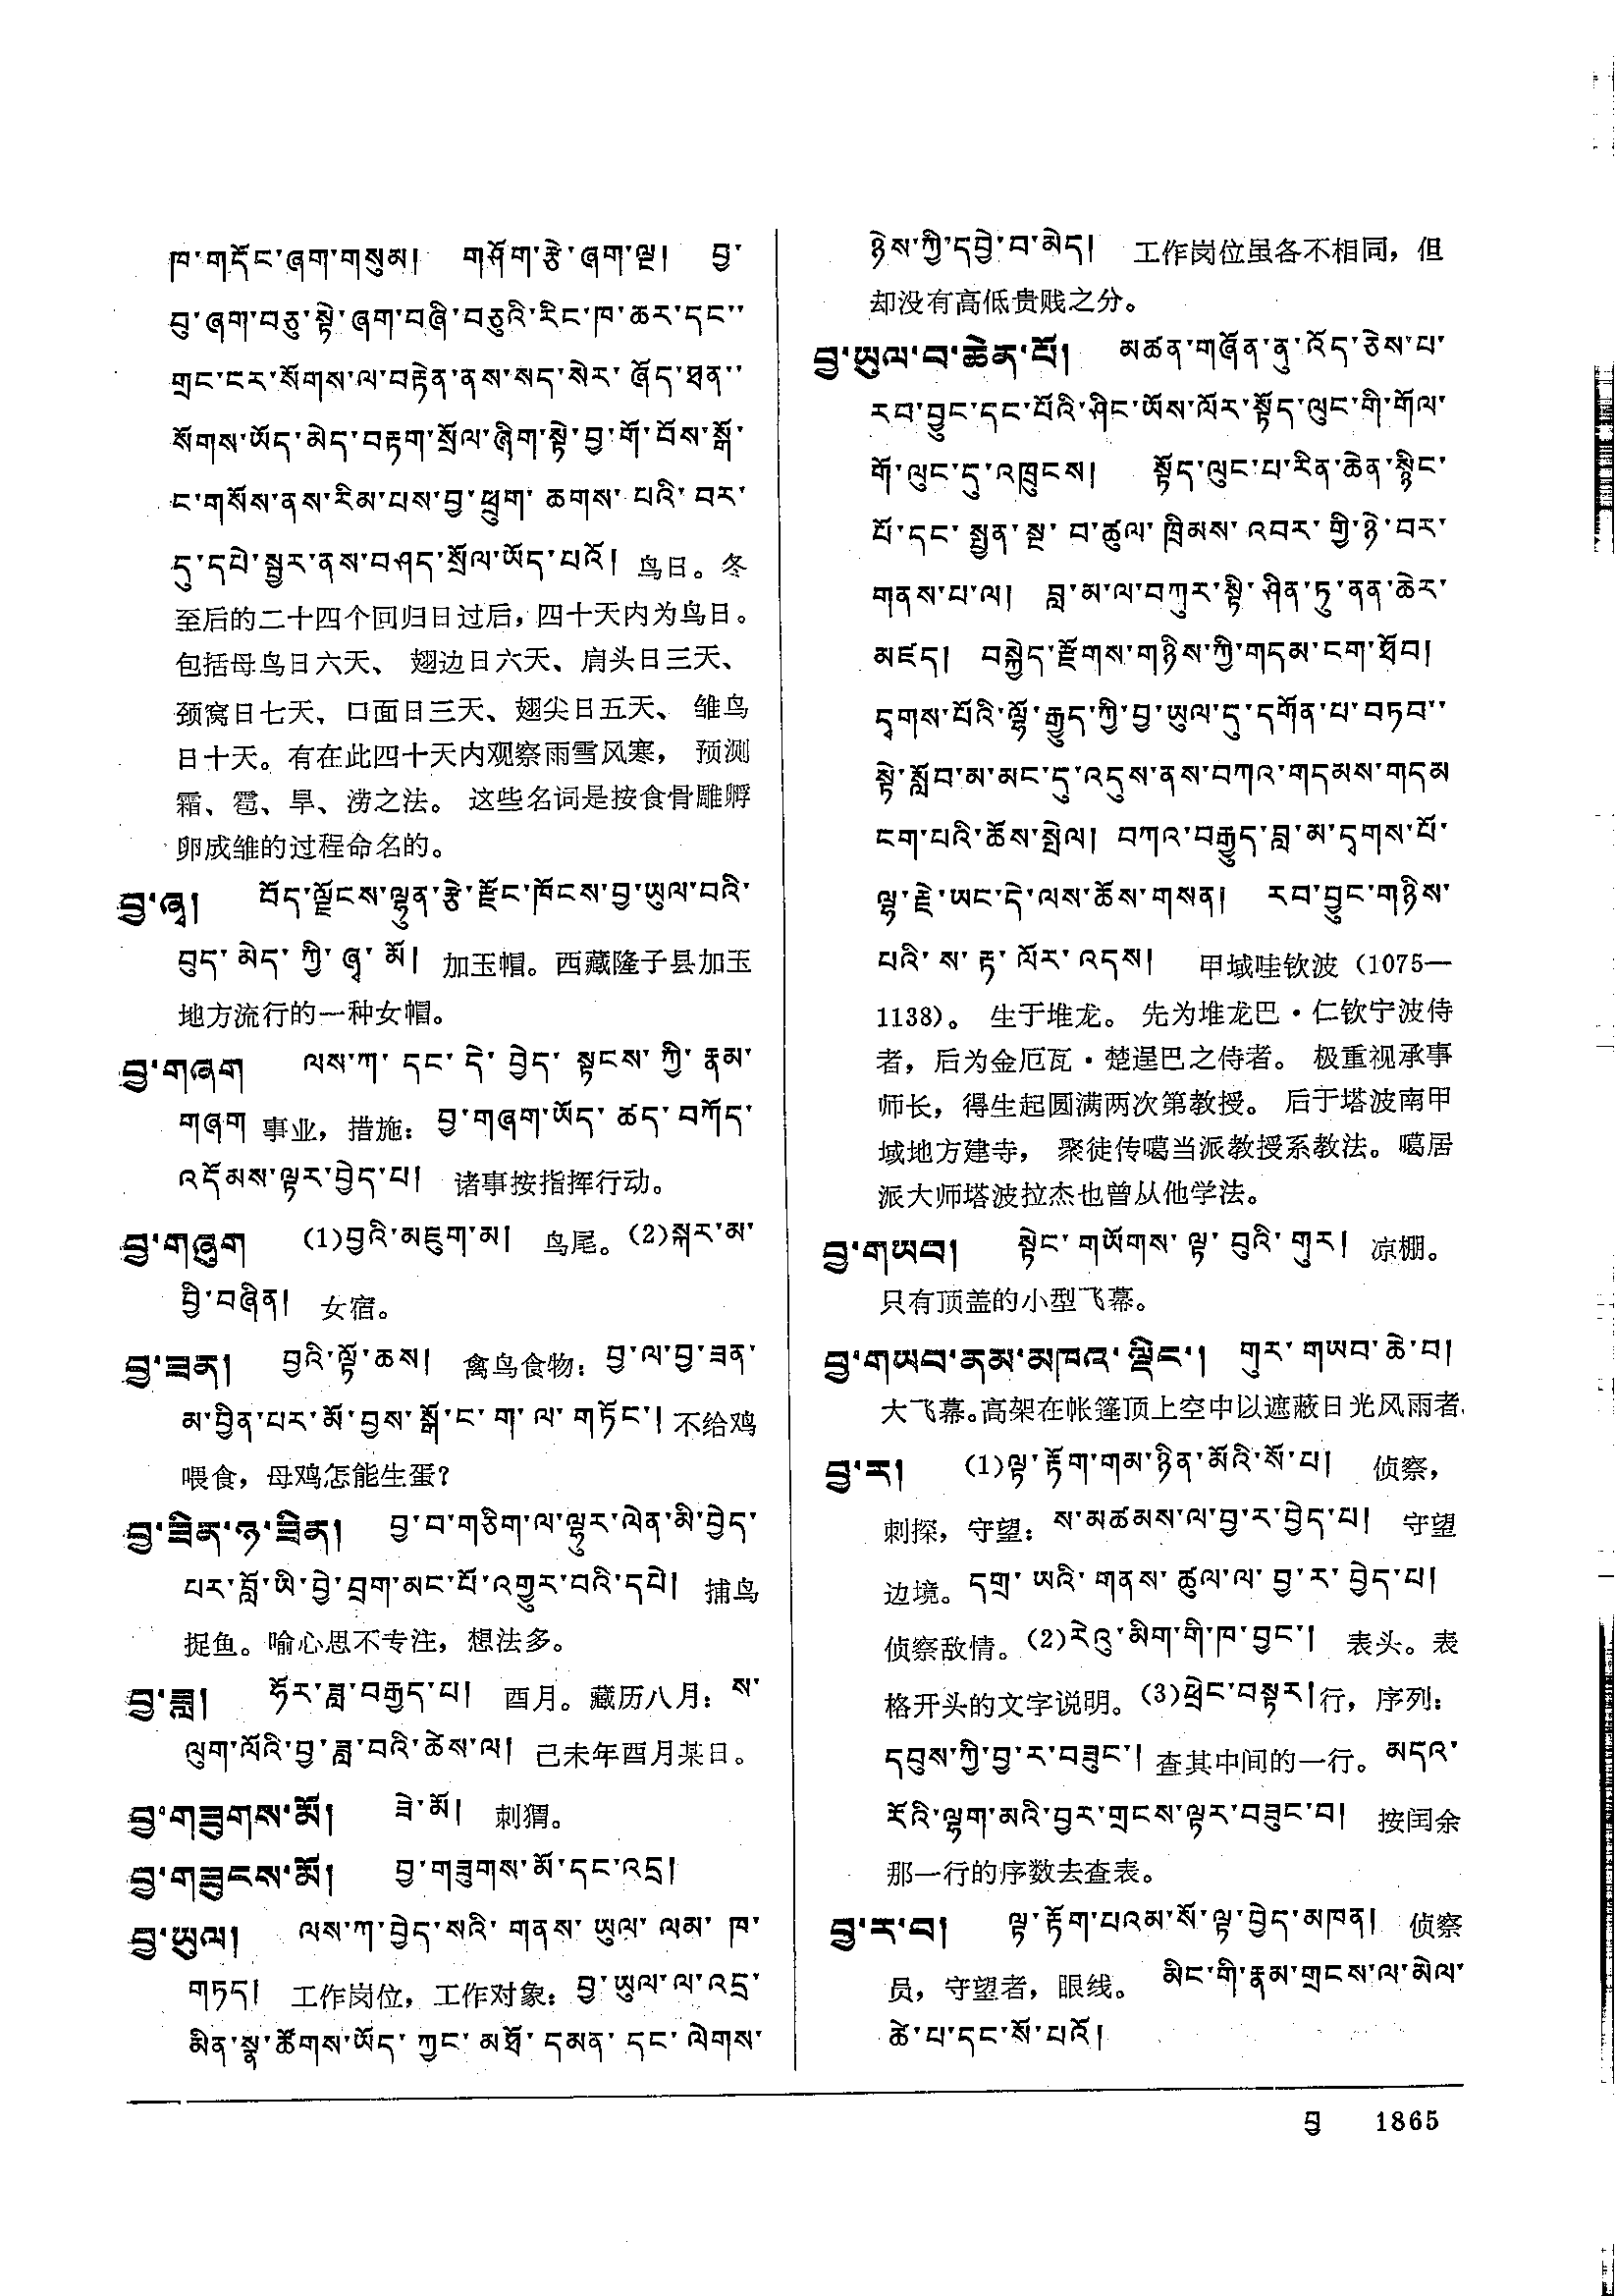 ཁ་གདོང་ཞག་གསུམ། གཤོག་རྩེ་ཞག་ལྔ། བྱ་
བུ་ཞག་བཅུ་སྟེ་ཞག་བཞི་བཅུའི་རིང་ཁ་ཆར་དང་་
གྲང་ངར་སོགས་ལ་བརྟེན་ནས་སད་སེར་ཞོད་ཐན་་
སོགས་ཡོད་མེད་བརྟག་སྲོལ་ཞིག་སྟེ་བྱ་གོ་བོས་སྒོ་
ང་གསོས་ནས་རིམ་པས་བྱ་ཕྲུག་ཆགས་པའི་བར་
དུ་དཔེ་སྦྱར་ནས་བཤད་སྲོལ་ཡོད་པའོ། 鸟日。冬
至后的二十四个回归日过后，四十天内为鸟日。
包括母鸟日六天、翅边日六天、肩头日三天、
颈窝日七天、口面日三天、翅尖日五天、雏鸟
日十天。有在此四十天内观察雨雪风寒，预测
霜、雹、旱、涝之法。这些名词是按食骨雕孵
卵成雏的过程命名的。
བྱ་ཞྭ། བོད་ལྗོངས་ལྷུན་རྩེ་རྫོང་ཁོངས་བྱ་ཡུལ་བའི་
བུད་མེད་ཀྱི་ཞྭ་མོ། 加玉帽。西藏隆子县加玉
地方流行的一种女帽。
བྱ་གཞག ལས་ཀ་དང་དེ་བྱེད་སྟངས་ཀྱི་རྣམ་
གཞག 事业，措施：བྱ་གཞག་ཡོད་ཚད་བཀོད་
འདོམས་ལྟར་བྱེད་པ། 诸事按指挥行动。
བྱ་གཞུག (1)བྱའི་མཇུག་མ། 鸟尾。(2)སྐར་མ་
བྱི་བཞིན། 女宿。
བྱ་ཟན། བྱའི་ལྟོ་ཆས། 禽鸟食物：བྱ་ལ་བྱ་ཟན་
མ་བྱིན་པར་མོ་བྱས་སྒོ་ང་ག་ལ་གཏོང་། 不给鸡
喂食，母鸡怎能生蛋？
བྱ་ཟིན་ཉ་ཟིན། བྱ་བ་གཅིག་ལ་ལྷུར་ལེན་མི་བྱེད་
པར་བློ་ཡི་བྱེ་བྲག་མང་པོ་འགྱུར་བའི་དཔེ། 捕鸟
捉鱼。喻心思不专注，想法多。
བྱ་ཟླ། ཧོར་ཟླ་བརྒྱད་པ། 酉月。藏历八月：ས་
ལུག་ལོའི་བྱ་ཟླ་བའི་ཚེས་ལ། 己未年酉月某日。
བྱ་གཟུགས་མོ། ཟེ་མོ། 刺猬。
བྱ་གཟུངས་མོ། བྱ་གཟུགས་མོ་དང་འདྲ།
བྱ་ཡུལ། ལས་ཀ་བྱེད་སའི་གནས་ཡུལ་ལམ་ཁ་
གཏད། 工作岗位，工作对象：བྱ་ཡུལ་ལ་འདྲ་
མིན་སྣ་ཚོགས་ཡོད་ཀྱང་མཐོ་དམན་དང་ལེགས་
ཉེས་ཀྱི་དབྱེ་བ་མེད། 工作岗位虽各不相同，但
却没有高低贵贱之分。
བྱ་ཡུལ་བ་ཆེན་པོ། མཚན་གཞོན་ནུ་འོད་ཅེས་པ་
རབ་བྱུང་དང་པོའི་ཤིང་ཡོས་ལོར་སྟོད་ལུང་གི་གོལ་
གོ་ལུང་དུ་འཁྲུངས། སྟོད་ལུང་པ་རིན་ཆེན་སྙིང་
པོ་དང་སྤྱན་སྔ་བ་ཚུལ་ཁྲིམས་འབར་གྱི་ཉེ་བར་
གནས་པ་ལ། བླ་མ་ལ་བཀུར་སྟི་ཤིན་ཏུ་ནན་ཆེར་
མཛད། བསྐྱེད་རྫོགས་གཉིས་ཀྱི་གདམ་ངག་ཐོབ།
དྭགས་པོའི་ལྷོ་རྒྱུད་ཀྱི་བྱ་ཡུལ་དུ་དགོན་པ་བཏབ་་
སྟེ་སློབ་མ་མང་དུ་འདུས་ནས་བཀའ་གདམས་གདམ
ངག་པའི་ཆོས་སྤེལ། བཀའ་བརྒྱུད་བླ་མ་དྭགས་པོ་
ལྷ་རྗེ་ཡང་དེ་ལས་ཆོས་གསན། རབ་བྱུང་གཉིས་
པའི་ས་རྟ་ལོར་འདས། 甲域哇钦波（1075—
1138）。生于堆龙。先为堆龙巴·仁钦宁波侍
者，后为金厄瓦·楚逞巴之侍者。极重视承事
师长，得生起圆满两次第教授。后于塔波南甲
域地方建寺，聚徒传噶当派教授系教法。噶居
派大师塔波拉杰也曾从他学法。
བྱ་གཡབ། སྟེང་གཡོགས་ལྟ་བུའི་གུར། 凉棚。
只有顶盖的小型飞幕。
བྱ་གཡབ་ནམ་མཁའ་ལྡིང་། གུར་གཡབ་ཆེ་བ།
大飞幕。高架在帐篷顶上空中以遮蔽日光风雨者.
བྱ་ར། (1)ལྟ་རྟོག་གམ་ཉིན་མོའི་སོ་པ། 侦察，
刺探，守望：ས་མཚམས་ལ་བྱ་ར་བྱེད་པ། 守望
边境。དགྲ་ཡའི་གནས་ཚུལ་ལ་བྱ་ར་བྱེད་པ།
侦察敌情。(2)རེའུ་མིག་གི་ཁ་བྱང་། 表头。表
格开头的文字说明。(3)ཕྲེང་བསྟར། 行，序列：
དབུས་ཀྱི་བྱ་ར་བཟུང་། 查其中间的一行。མདའ་
རོའི་ལྷག་མའི་བྱར་གྲངས་ལྟར་བཟུང་བ། 按闰余
那一行的序数去查表。
བྱ་ར་བ། ལྟ་རྟོག་པའམ་སོ་ལྟ་བྱེད་མཁན། 侦察
员，守望者，眼线。མིང་གི་རྣམ་གྲངས་ལ་མེལ་
ཚེ་པ་དང་སོ་པའོ།
བྱ 1865